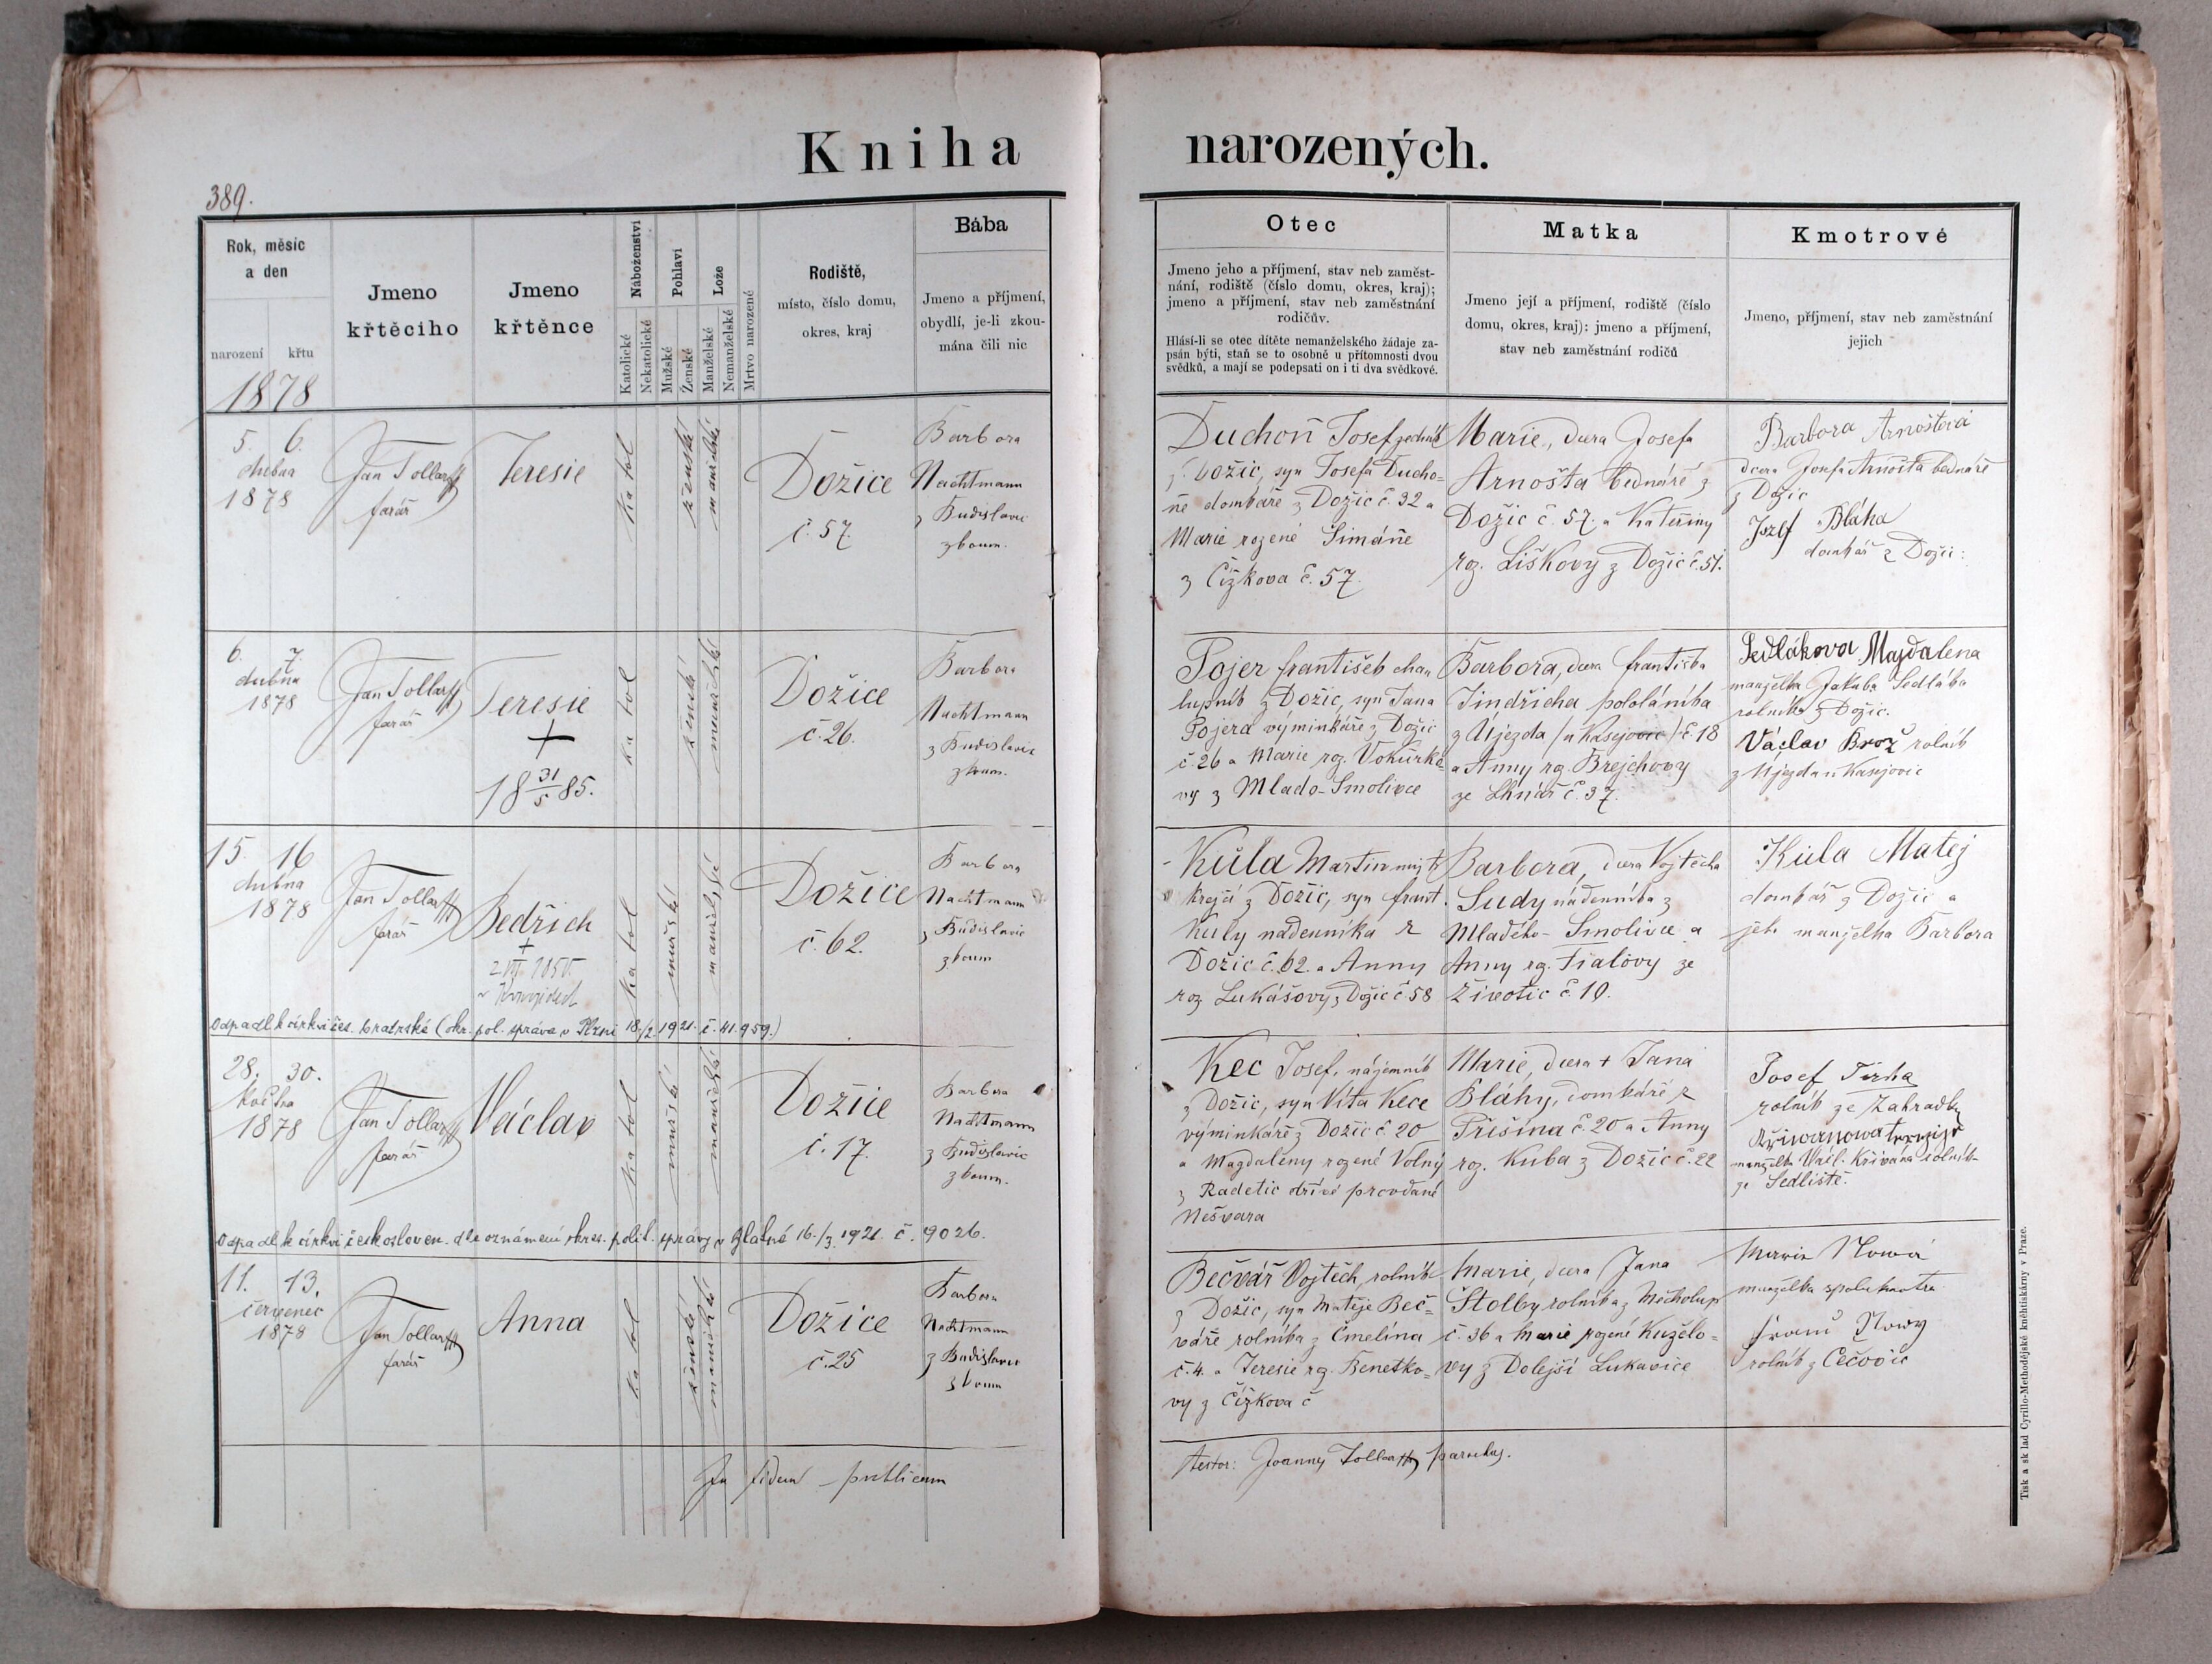 Kniha narozených.
389.
Rok, měsíc
a den
narození křtu
Jmeno
křtěcího
Jmeno
křtěnce
Náboženství
Katolické
Nekatolické
Pohlaví
Mužské
Ženské
Lože
Manželské
Nemanželské
Mrtvo narozené
Rodiště,
místo, číslo domu,
okres, kraj
Bába
Jmeno a příjmení,
obydlí, je-li zkou-
mána čili nic
Otec
Jmeno jeho a příjmení, stav neb zaměst-
nání, rodiště (číslo domu, okres, kraj);
jmeno a příjmení, stav neb zaměstnání
rodičův.
Hlásí-li se otec dítěte nemanželského žádaje za-
psán býti, staň se to osobně u přítomnosti dvou
svědků, a mají se podepsati on i ti dva svědkové.
Matka
Jmeno její a příjmení, rodiště (číslo
domu, okres, kraj): jmeno a příjmení,
stav neb zaměstnání rodičů
Kmotrové
Jmeno, příjmení, stav neb zaměstnání
jejich
1878
5. 6.
dubna
1878
Jan Tollar
farář
Teresie
katol
ženské
manželské
Dožice
č. 57.
Barbora
Nachtmann
z Budislavic
zkoum.
Duchoň Josef
z Dožic, syn Josefa Ducho=
ně domkáře z Dožic č. 32 a
Marie rozené Šimáně
z Čížkova č. 57.
Marie, dcera Josefa
Arnošta bednáře z
Dožic č. 57. a Kateřiny
roz. Liškovy z Dožic č. 51.
Barbora Arnoštová
dcera Josefa Arnošta bednáře
z Dožic
Josef Bláha
domkář z Dožic:
6. 7.
dubna
1878
Jan Tollar
farář
Teresie
+
18 31/5 85.
katol
ženské
manželské
Dožice
č. 26.
Barbora
Nachtmann
z Budislavic
zkoum.
Pojer František cha
lupník z Dožic, syn Jana
Pojera výminkáře z Dožic
č. 26 a Marie roz. Vokurko=
vy z Mlado-Smolivce
Barbora, dcera Františka
Jindřicha pololáníka
z Újezda (u Kasejovic) č. 18
a Anny roz. Brejchovy
ze Lnář č. 37.
Sedlákova Majdalena
manželka Jakuba Sedláka
rolníka z Dožic.
Václav Brož rolník
z Újezda u Kasejovic
15. 16
dubna
1878
Jan Tollar
farář
Bedřich
+
katol
mužské
manželské
Dožice
č. 62.
Barbora
Nachtmann
z Budislavic
zkoum
Odpadl k církvi čes. bratrské (okr. pol. správa v Plzni 18./2. 1921. č. 41.959.)
Kůla Martin
krejčí z Dožic, syn Frant.
Kůly nádenníka z
Dožic č. 62. a Anny
roz Lukášovy z Dožic č 58
Barbora, dcera Vojtěcha
Sudy nádenníka z
Mladého-Smolivce a
Anny rz. Fialovy ze
Životic č. 10.
Kůla Matej
domkář z Dožic a
jeho manželka Barbora
28. 30.
května
1878
Jan Tollar
farář
Václav
katol
mužské
manželské
Dožice
č. 17.
Barbora
Nachtmann
z Budislavic
zkoum.
Odpadl k církvi československ. dle oznámení okres. polit. správy v Blatné 16./3. 1921. č. 9026.
Kec Josef, nájemník
z Dožic, syn Víta Kece
výminkáře z Dožic č. 20
a Magdaleny rozené Volný
z Radetic dříve provdané
Nešvara
Marie, dcera + Jana
Bláhy, domkáře z
Příšina č. 20 a Anny
roz. Kuba z Dožic č. 22
Josef Tirha
rolník ze Zahradky
manželka Václ. Křivána rolník
ze Sedliště.
11. 13.
červenec
1878
Jan Tollar
farář
Anna
katol
ženské
manželské
Dožice
č. 25
Barbora
Nachtmann
z Budislavic
zkoum
Bečvář Vojtěch, rolník
z Dožic, syn Matěje Beč=
váře rolníka z Čmelína
č. 4. a Teresie rz. Benetko=
vy z Čížkova č
Marie, dcera Jana
Štolby rolníka z Měcholup
č. 36 a Marie rozené Kuželo=
vy z Dolejší Lukavice
Marie Nowá
manželka spolukmotra
Nowy
rolník z Čečovic
In fidem publicam
Testor: Joannes Tollar parochus.
Tisk a sklad Cyrillo-Methodějské kněhtiskárny v Praze.